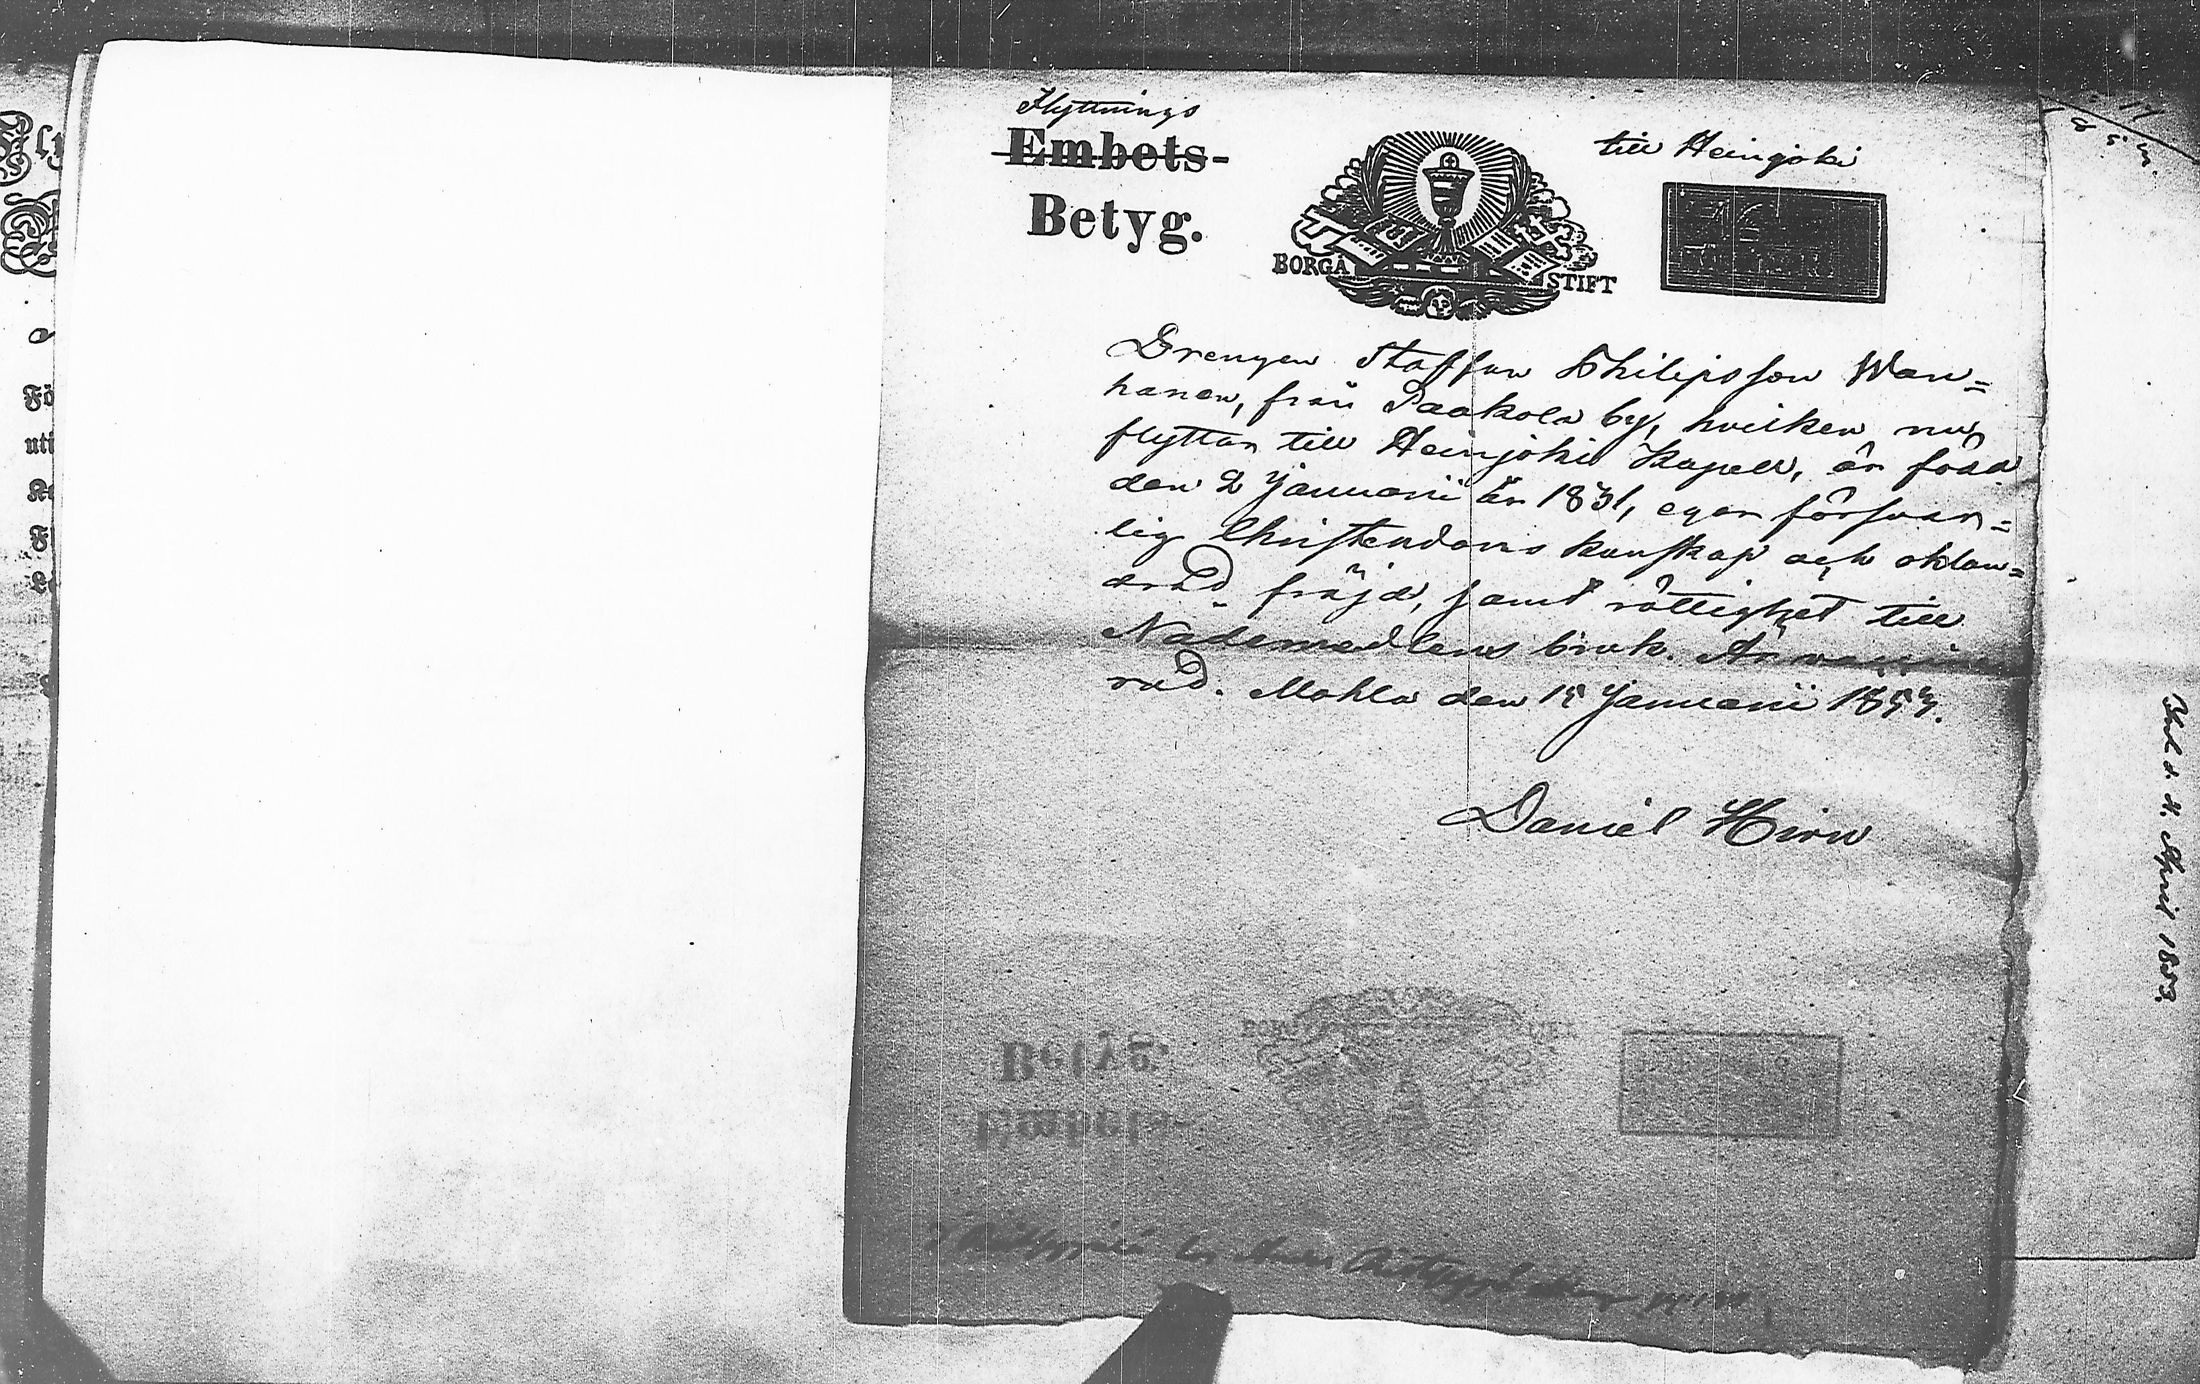 Flyttnings
Embets-
Betyg.
BORGÅ STIFT
till Heinjoki
Drengen Staffan Philipsson Wan=
hanen, från Paakola by, hvilken nu
flyttar till Heinjoki Kapell, är född
den 2 Januarii år 1831, eger försvar=
lig Christendoms kunskap och oklan=
drad fräjd, samt rättighet till
Nådemedlens bruk. Är vaccine
rad. Mohla den 15 Januarii 1853.
Daniel Hirn
April 1853.
Fö
uti